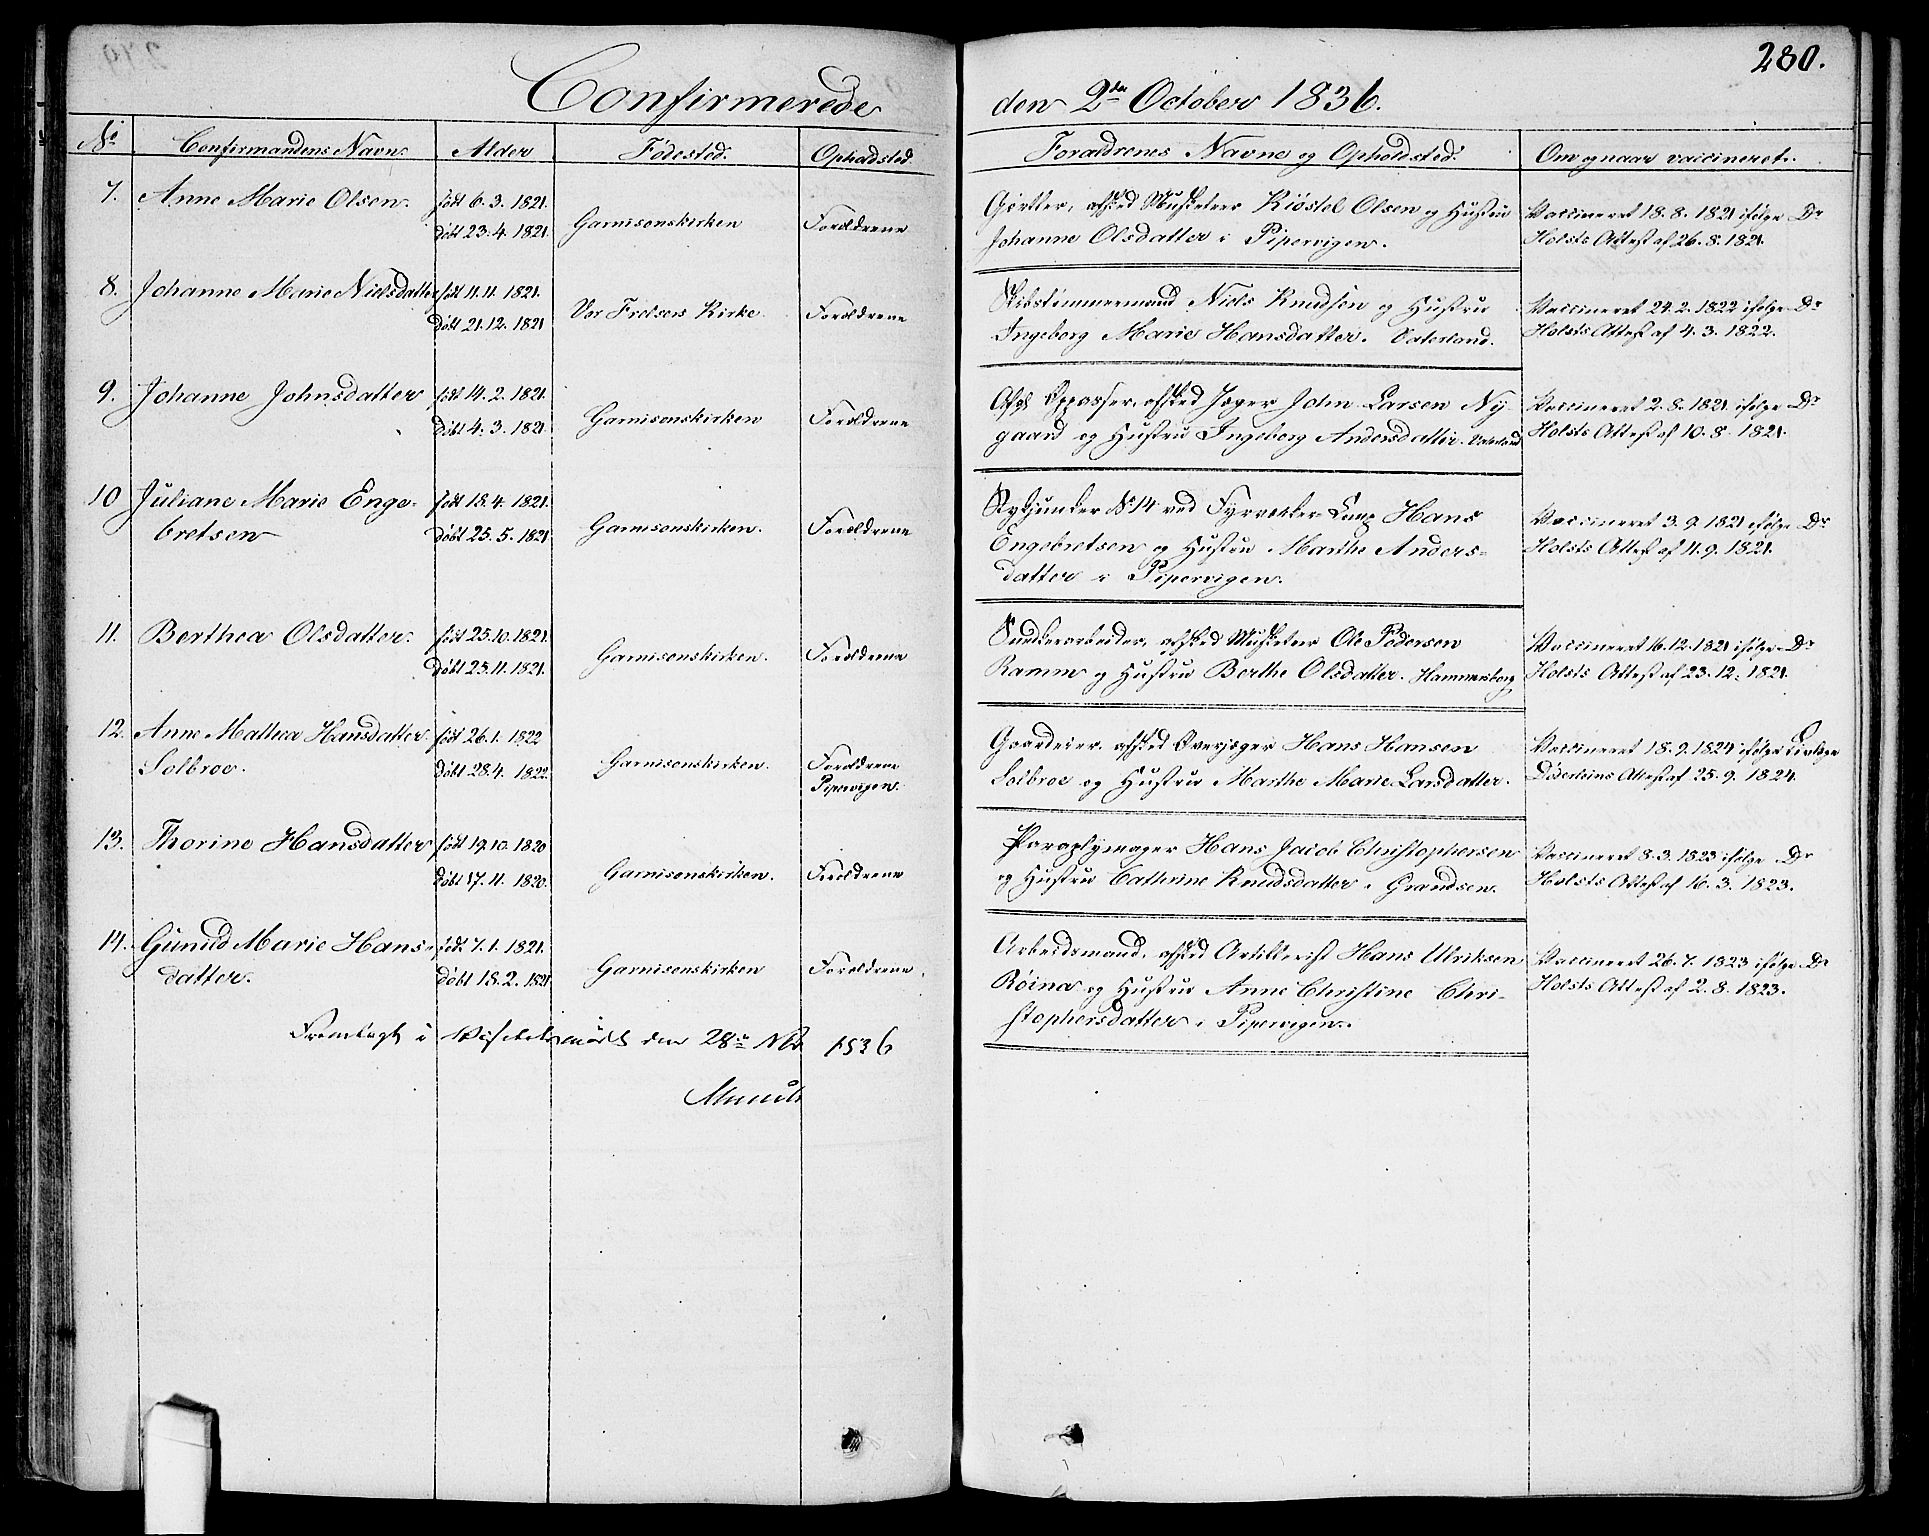 280.
Confirmerede den 2den October 1836.
No Confirmandens Navn. Alder Fødested. Opholdsted Forældrenes Navne og Opholdsted. Om og naar vaccineret.
7. Anne Marie Olsen. født 6. 3. 1821.
døbt 23. 4. 1821. Garnisonskirken Forældrene
Gjørtler, afsked Musketeer Kiøstel Olsen og Hustru
Johanne Olsdatter i Pipervigen.
Vaccineret 18. 8. 1821 ifølge Dr
Holsts Attest af 26. 8. 1821.
8. Johanne Marie Nielsdatter født 11. 11. 1821.
døbt 21. 12. 1821 Vor Frelsers Kirke. Forældrene
Skibstømmermand Niels Knudsen og Hustru
Ingeborg Marie Hansdatter. Vaterland.
Vaccineret 24. 2. 1822 ifølge Dr
Holsts Attest af 4. 3. 1822.
9. Johanne Johnsdatter født 14. 2. 1821.
døbt 4. 3. 1821. Garnisonskirken Forældrene
Opposser, afsked Jæger John Larsen Ny-
gaard og Hustru Ingeborg Andersdatter. Vaterland
Vaccineret 2. 8. 1821 ifølge Dr
Holsts Attest af 10. 8. 1821.
10 Juliane Marie Enge-
bretsen
født 18. 4. 1821.
døbt 25. 5. 1821 Garnisonskirken. Forældrene
No 14 ved Fyrverker Hans
Engebretsen og Hustru Marthe Anders-
datter i Pipervigen.
Vaccineret 3. 9. 1821 ifølge Dr
Holsts Attest af 11. 9. 1821.
11. Berthea Olsdatter. født 25. 10. 1821.
døbt 25. 11. 1821. Garnisonskirken. Forældrene
Sukkerarbeider, afsked Musketeer Ole Pedersen
Ramm og Hustru Berthe Olsdatter. Hammersborg
Vaccineret 16. 12. 1821 ifølge Dr
Holsts Attest af 23. 12. 1821.
12. Anne Mathea Hansdatter
Solbroe.
født 26. 1. 1822
døbt 28. 4. 1822. Garnisonskirken. Forældrene
Pipervigen.
Gaardeier, afsked Overjæger Hans Hansen
Solbroe og Hustru Marthe Marie Larsdatter.
Vaccineret 18. 9. 1824 ifølge
Attest af 25. 9. 1824.
13. Thorine Hansdatter født 19. 10. 1820
døbt 17. 11. 1820. Garnisonskirken. Forældrene
Paraplymager Hans Jacob Christophersen
og Hustru Cathrine Knudsdatter i Grændsen.
Vaccineret 8. 3. 1823 ifølge Dr
Holsts Attest af 16. 3. 1823.
14. Gunild Marie Hans-
datter.
født 7. 1. 1821.
døbt 18. 2. 1821 Garnisonskirken Forældrene.
Arbeidsmand, afsked Artillerist Hans Ulriksen
Røina og Hustru Anne Christine Chri-
stophersdatter i Pipervigen.
Vaccineret 26. 7. 1823 ifølge Dr
Holsts Attest af 2. 8. 1823.
Fremlagt i den 28de 1836